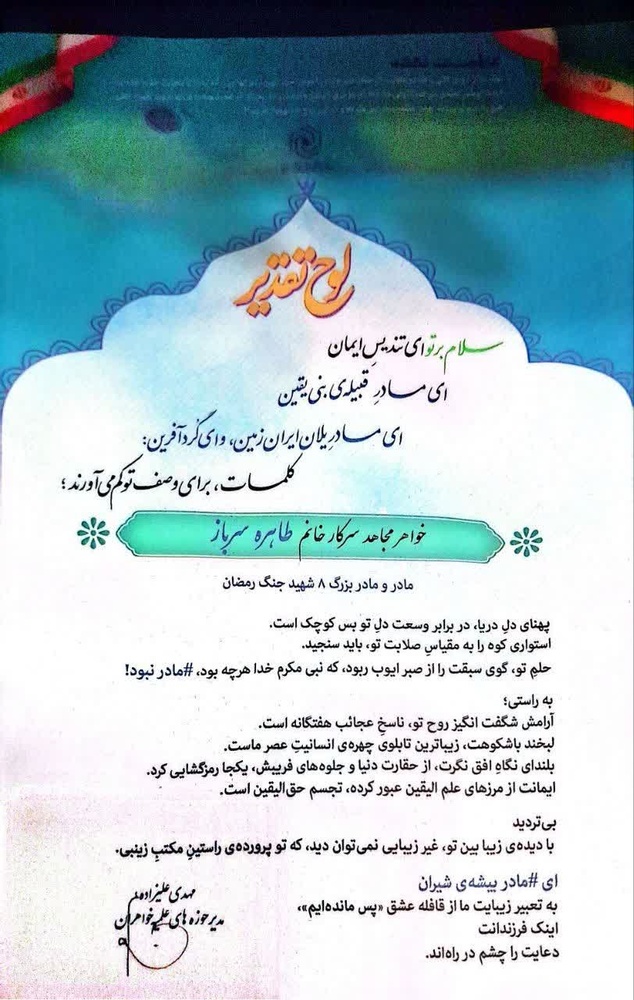 لوح تقدیر
سلام بر تو ای تندیسِ ایمان
ای مادرِ قبیله‌ی بنی یقین
ای مادرِ یلان ایران زمین، و ای گُردآفرین:
کلمات، برای وصف تو کم می‌آورند؛
خواهر مجاهد سرکار خانم طاهره سرباز
مادر و مادر بزرگ ۸ شهید جنگ رمضان
پهنای دلِ دریا، در برابر وسعت دلِ تو بس کوچک است.
استواری کوه را به مقیاسِ صلابت تو، باید سنجید.
حلمِ تو، گوی سبقت را از صبر ایوب ربود، که نبی مکرم خدا هرچه بود، #مادر نبود!
به راستی؛
آرامش شگفت انگیز روح تو، ناسخِ عجائب هفتگانه است.
لبخند باشکوهت، زیباترین تابلوی چهره‌ی انسانیتِ عصر ماست.
بلندای نگاهِ افق نگرت، از حقارت دنیا و جلوه‌های فریبش، یکجا رمزگشایی کرد.
ایمانت از مرزهای علم الیقین عبور کرده، تجسم حق‌الیقین است.
بی‌تردید
با دیده‌ی زیبا بین تو، غیر زیبایی نمی‌توان دید، که تو پرورده‌ی راستینِ مکتبِ زینبی.
ای #مادر بیشه‌ی شیران
به تعبیر زیبایت ما از قافله عشق «پس مانده‌ایم»،
اینک فرزندانت
دعایت را چشم در راه‌اند.
مهدی علیزاده
مدیر حوزه های علمیه خواهران